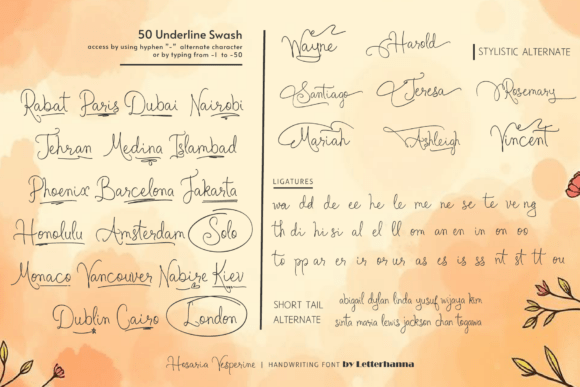 50 Underline Swash
access by using hyphen "-" alternate character
or by typing from -1 to -50
Rabat Paris Dubai Nairobi
Tehran Medina Islambad
Phoenix Barcelona Jakarta
Honolulu Amsterdam Solo
Monaco Vancouver Nabire Kiev
Dublin Cairo London
Wayne Harold
STYLISTIC ALTERNATE
Santiago Teresa Rosemary
Mariah Ashleigh Vincent
LIGATURES
wa dd de ee he le me ne se te ve ng
th di hi si al el ll om an en in on oo
to pp ar er ir or ur as es is ss nt st tt ou
SHORT TAIL
ALTERNATE
abigail dylan linda yusuf wijaya kim
sinta maria lewis jackson chan togawa
Hosaria Vesperime | HANDWRITING FONT by Letterhanna